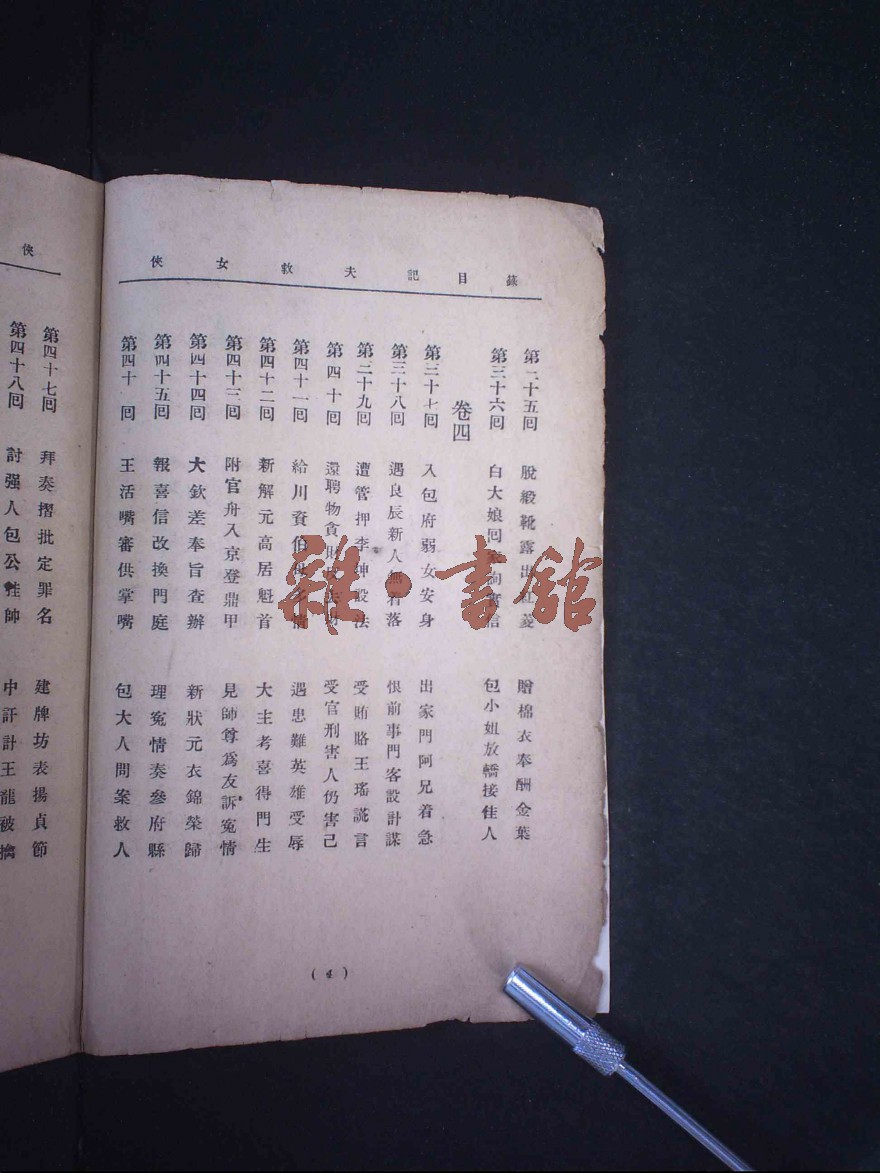 俠女救夫記目錄
第三十五回　脫緞靴露出　贈棉衣奉酬金葉
第三十六回　白大娘囘　包小姐放轎接佳人
卷四
第三十七囘　入包府弱女安身　出家門阿兄着急
第三十八囘　遇良辰新人無着落　恨前事門客設計謀
第三十九囘　遭管押李　設法　受賄賂王瑤謊言
第四十囘　還聘物貪財　受官刑害人仍害己
第四十一囘　給川資伯　遇患難英雄受辱
第四十二囘　新解元高居魁首　大主考喜得門生
第四十三囘　附官舟入京登鼎甲　見師尊爲友訴寃情
第四十四囘　大欽差奉旨查辦　新狀元衣錦榮歸
第四十五囘　報喜信改換門庭　理寃情奏參府縣
第四十　囘　王活嘴審供掌嘴　包大人問案救人
（4）
俠
第四十七囘　拜奏摺批定罪名　建牌坊表揚貞節
第四十八囘　討强人包公　師　中訐計王龍被擒
雜·書館